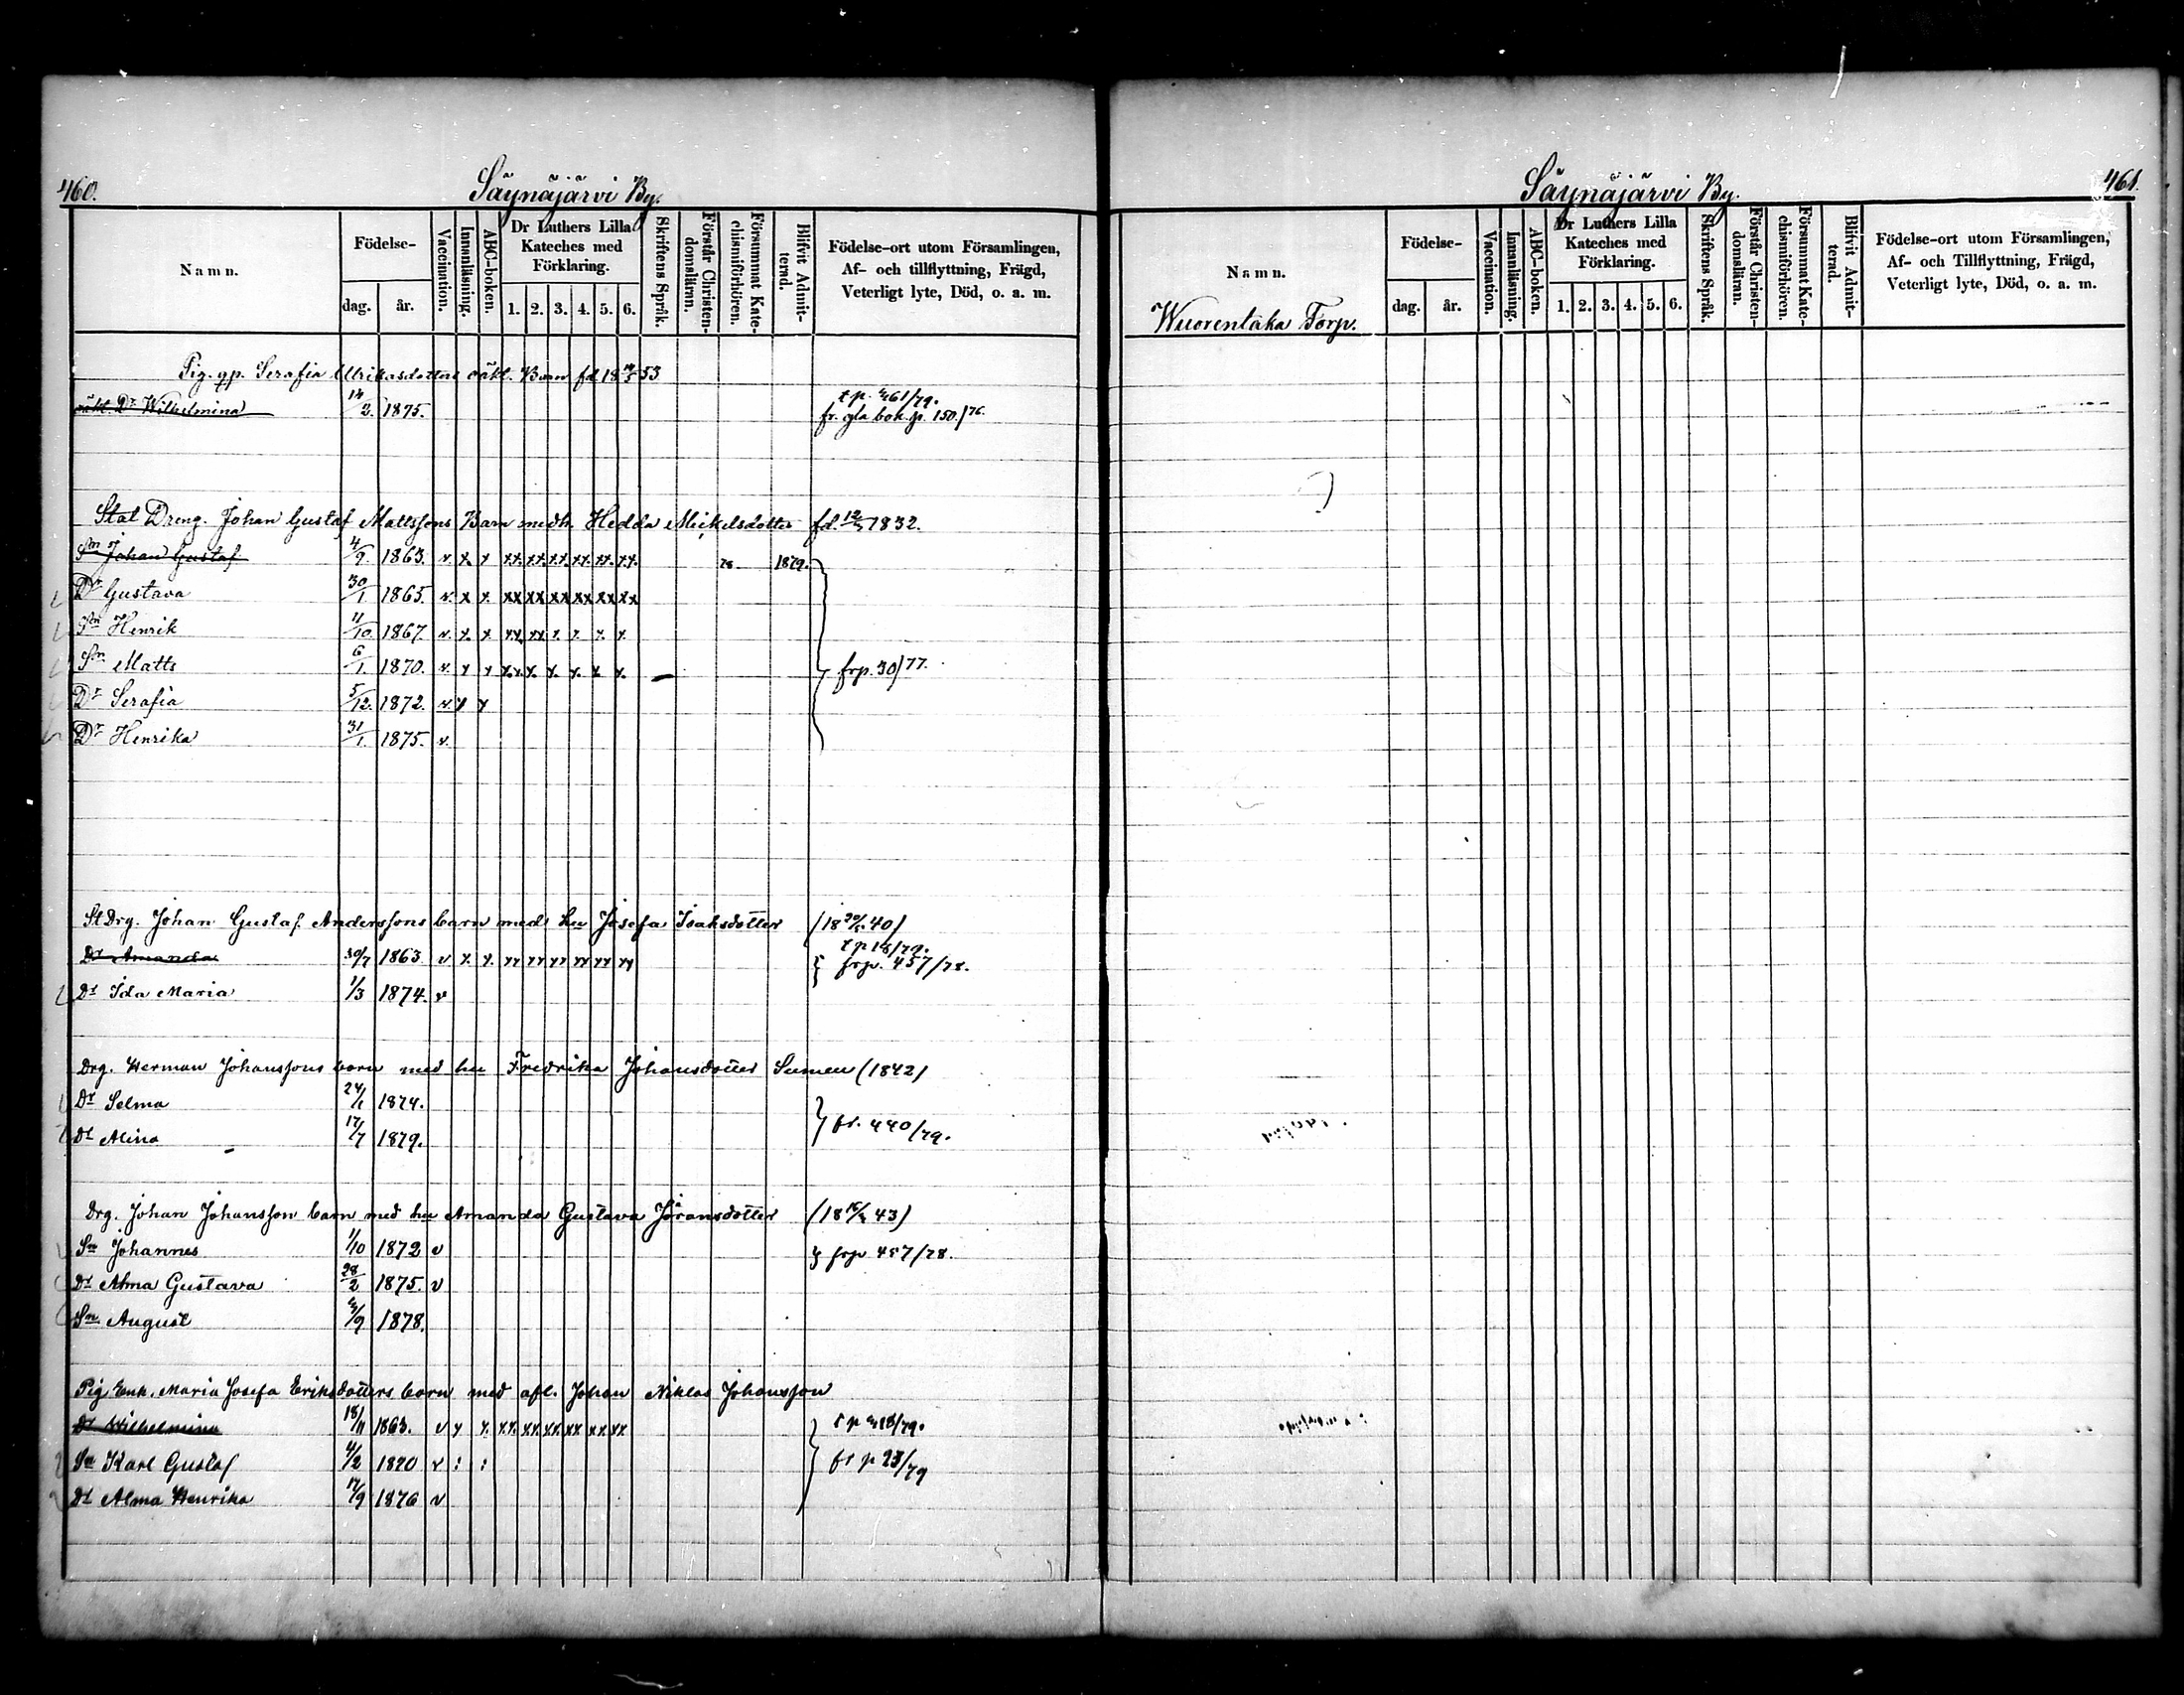 460.
Säynäjärvi By.
Namn.
Födelse-
dag. år.
Vaccination.
Innanläsning.
ABC-boken.
Dr Luthers Lilla
Kateches med
Förklaring.
1. 2. 3. 4. 5. 6.
Skriftens Språk.
Förstår Christen-
domsläran.
Försummat Kate-
chismiförhören.
Blifvit Admit-
terad.
Födelse-ort utom Församlingen,
Af- och tillflyttning, Frägd,
Veterligt lyte, Död, o. a. m.
Pig. gp. Serafia Ulrikasdotters oäkt. Barn fd 18 53
oäkt. Dr Wilhelmina 14/2. 1875. t p. 461/79.
fr. gla bok. p. 150./76.
Stat Dreng. Johan Gustaf Mattssons Barn medh. Hedda Mickelsdotter fd. 1832.
Sn Johan Gustaf 4/9. 1863. v. x. x xx. xx. xx. xx. xx. xx. 78 1879.
Dr Gustava 30/1 1865. v. x x. xx xx xx xx xx xx
Sn Henrik 11/10. 1867. v. x. x xx. xx. x. x. x. x.
Sn Matts 6/1. 1870. v. x x x.x. x. x. x. x. x. frp. 30/77.
Dr Serafia 5/12. 1872. v. x x
Dr Henrika 31/1. 1875. v.
St Drg. Johan Gustaf Anderssons barn med hu Josefa Isaksdotter (18 40)
t p 18/79.
Dr Amanda 30/7 1863 v x. x. xx xx xx xx xx xx frp. 457/78.
Dr Ida Maria 1/3 1874. v
Drg. Herman Johanssons barn med hu Fredrika Johansdotter Sumen (1842)
Dr Selma 24/1 1874.
Dr Mina 17/7 1879. fr. 440/79.
Drg. Johan Johansson barn med hu Amanda Gustava Göransdotter (18 43)
Sn Johannes 1/10 1872 v frp 457/78.
Dr Alma Gustava 28/2 1875. v
Sn August 1878.
Pig Enk. Maria Josefa Eriksdotters barn med afl. Johan Niklas Johansson
Dr Wilhelmina 18/11 1863. v x x. x.x. xx xx xx xx xx
Sn Karl Gustaf 4/2 1870 v : : fr p 23/79
Dr Alma Henrika 17/9 1876 v
461.
Säynäjärvi By.
Namn.
Wuorentaka Torp.
Födelse-
dag. år.
Vaccination.
Innanläsning.
ABC-boken.
Dr Luthers Lilla
Kateches med
Förklaring.
1. 2. 3. 4. 5. 6.
Skriftens Språk.
Förstår Christen-
domsläran.
Försummat Kate-
chismiförhören.
Blifvit Admit-
terad.
Födelse-ort utom Församlingen,
Af- och Tillflyttning, Frägd,
Veterligt lyte, Död, o. a. m.